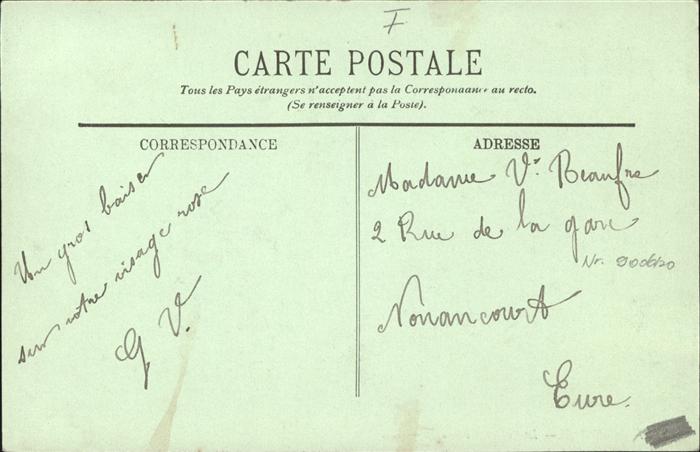 F
CARTE POSTALE
Tous les Pays étrangers n'acceptent pas la Correspondance au recto.
(Se renseigner à la Poste).
CORRESPONDANCE
Un gros baiser
sur votre visage rose
G V.
ADRESSE
Madame Vᵉ Beaufre
2 Rue de la gare
Nr. 900620
Nonancourt
Eure.